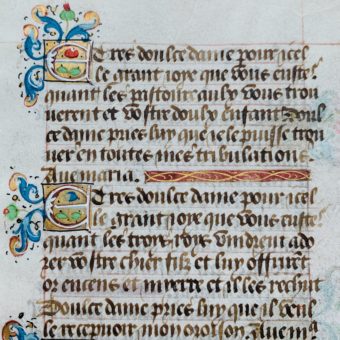 E tres doulce dame pour icel
le grant ioye que vous eustes
quant les pastoure aulx vous trou
uerent et vostre doulx enfant Doul
ce dame pries luy que ie le puisse trou
uer en toutes mes tribulations.
Aue maria.
E tres doulce dame pour icel
le grant ioye que vous eustes
quant les troys roys vindrent ado
rer vostre chier filz et luy offrirent
or encens et mirre et il les receut
Doulce dame pries luy que il veuil
le recepuoir mon oroison. Aue ma